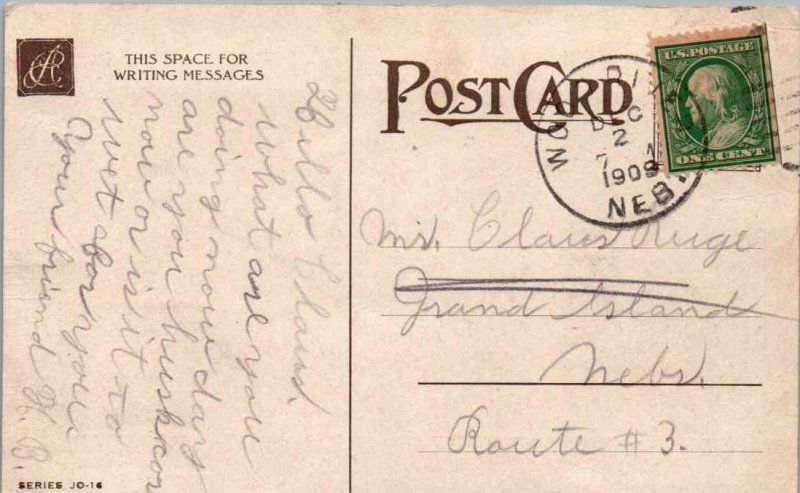 THIS SPACE FOR
WRITING MESSAGES
POST CARD
WOOD RIV
DEC
2
7 M
1909
NEB.
U.S. POSTAGE
ONE CENT
Mr. Claus Ruge
Grand Island
Nebr.
Route #3.
Hello Claus.
what are you
doing now days
are you husk cor
now or is it to
wet for you
your friend H. B.
SERIES JO-16